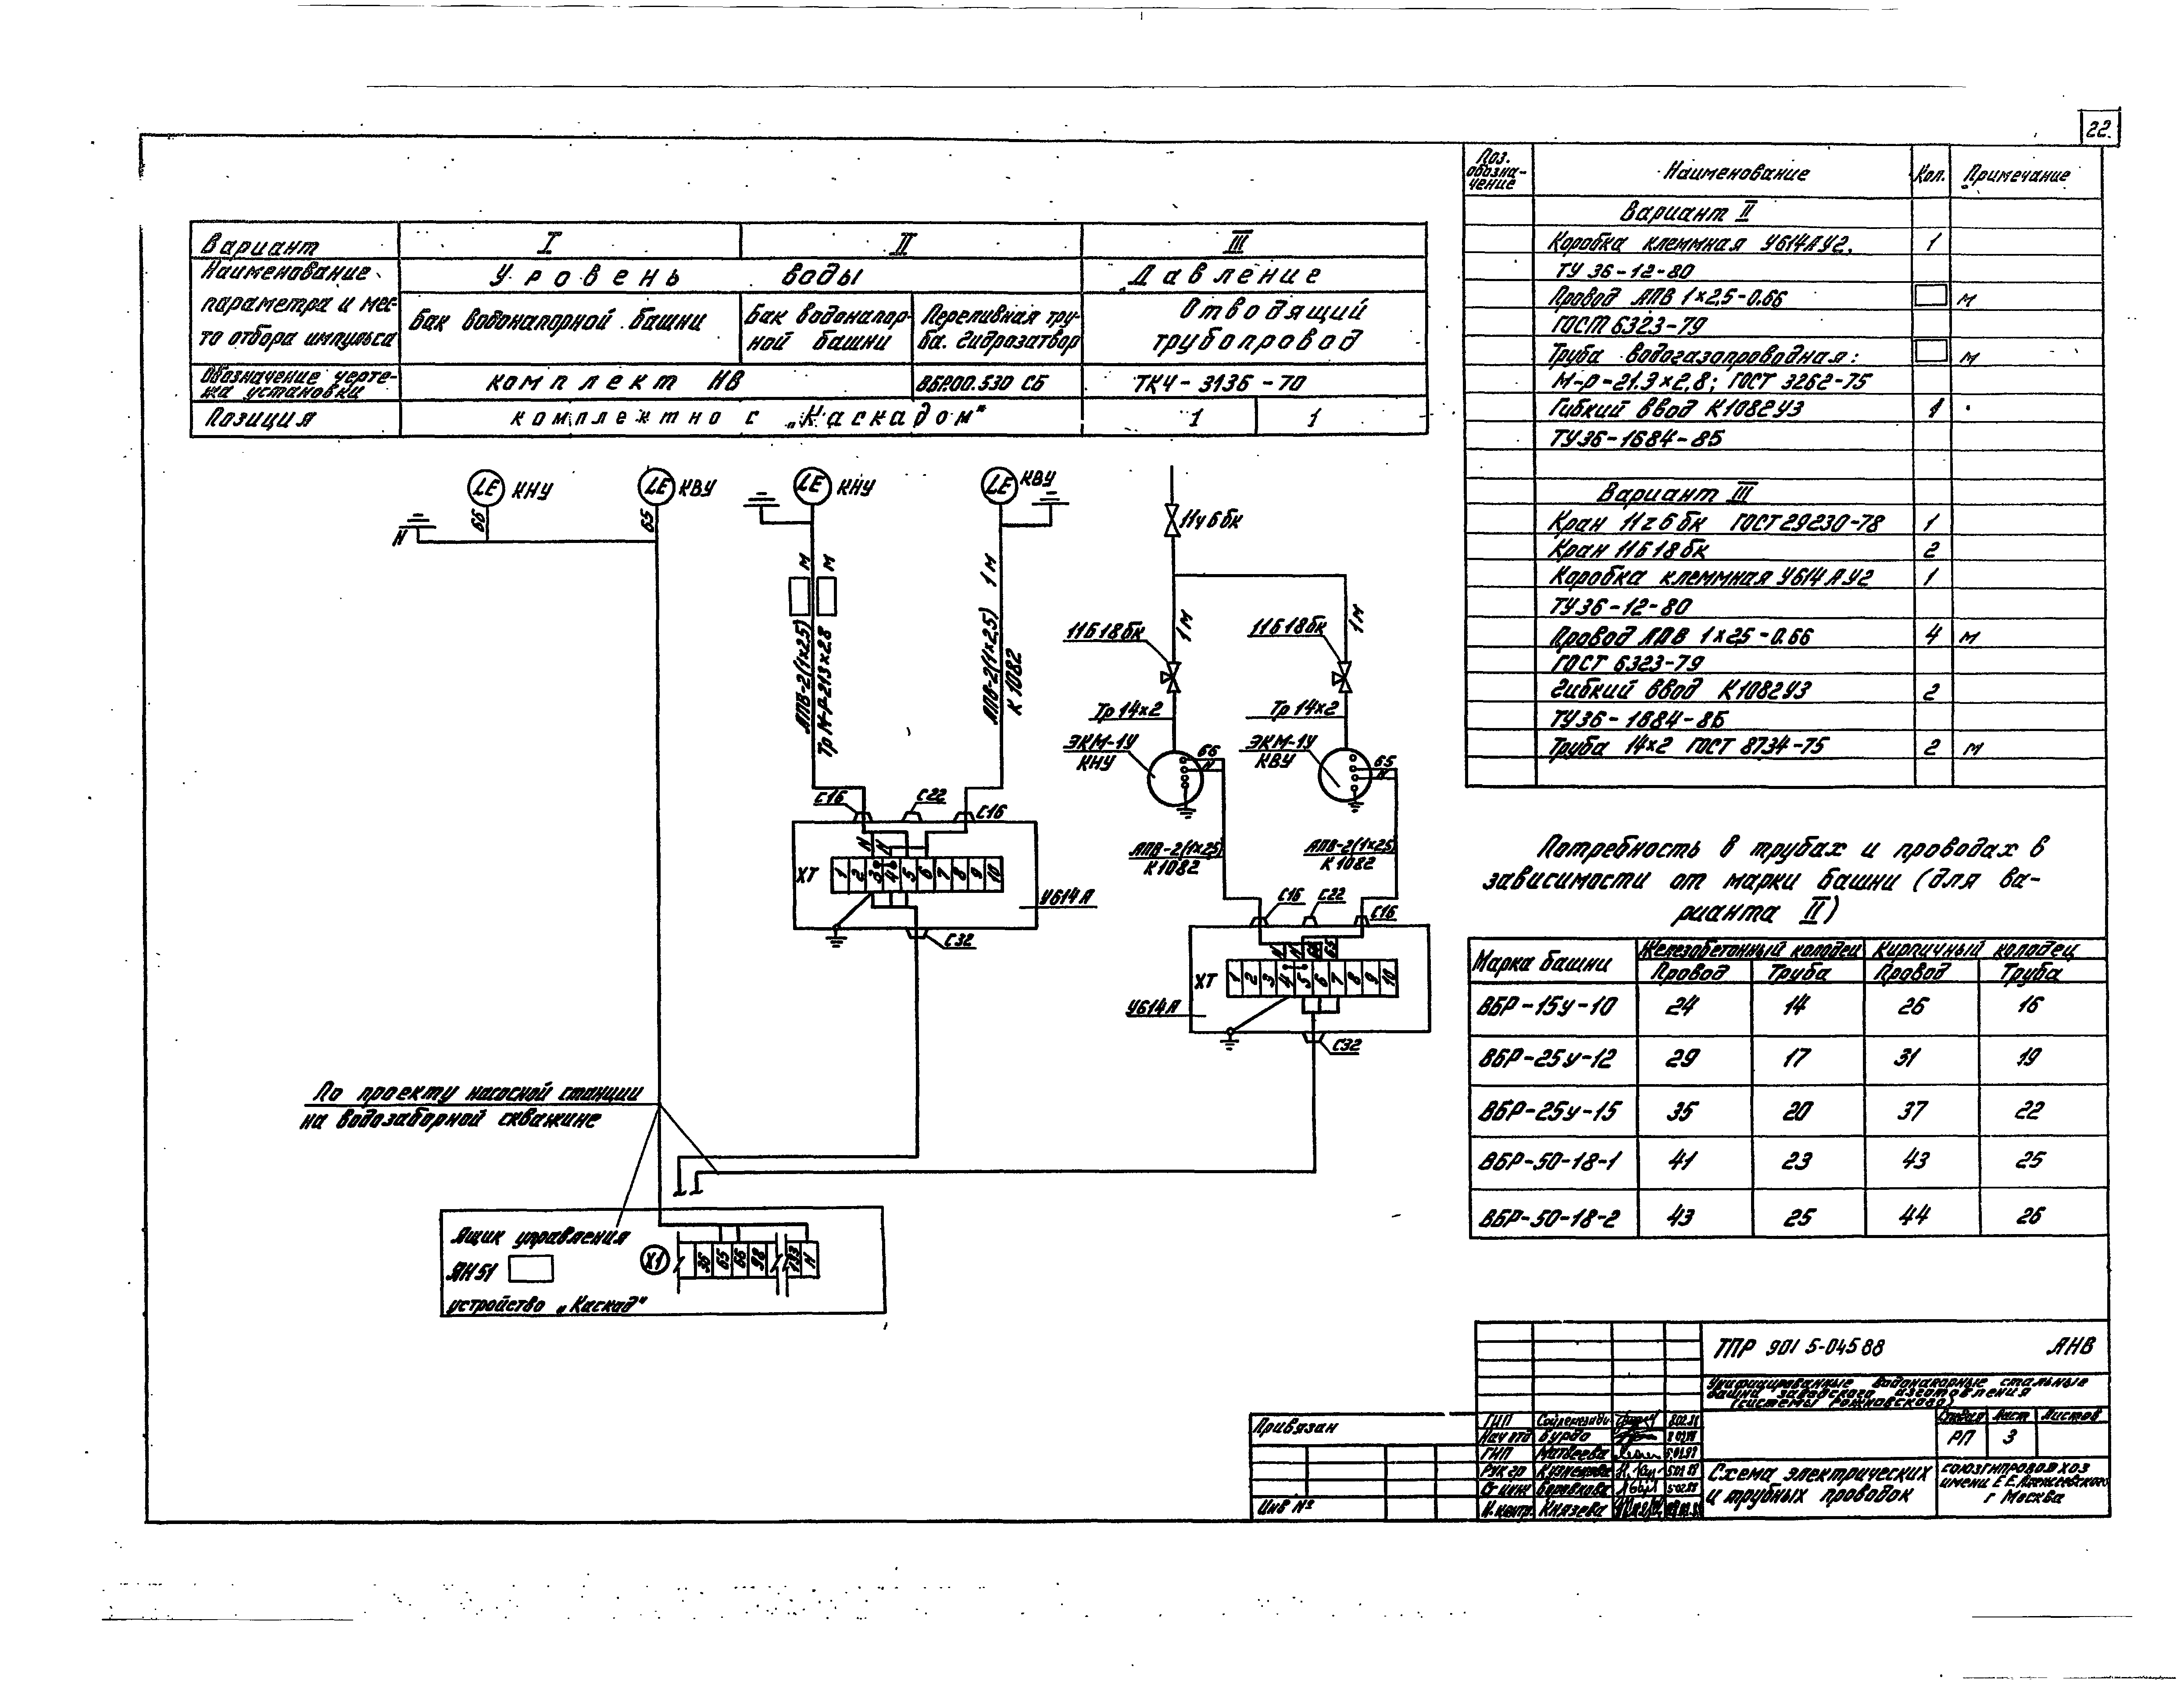 22
Вариант I II III
Наименование параметра и мес-то отбора импульса
Уровень воды
Давление
Бак водонапорной башни
Бак водонапор-ной башни
Переливная тру-ба. Гидрозатвор
Отводящий трубопровод
Обозначение черте-жа установки
комплект НВ
ВБР.00.530 СБ
ТК4-3136-70
Позиция
комплектно с „Каскадом"
1 1
LE КНУ
LE КВУ
LE КНУ
LE КВУ
66
65
N
М
М
АПВ-2(1×2,5)
Тр М-Р-21.3×2.8
АПВ-2(1×2,5) 1М
К 1082
11ч6бк
11Б18бк
1М
11Б18бк
1М
Тр 14×2
Тр 14×2
ЭКМ-1У
КНУ
66
N
ЭКМ-1У
КВУ
65
N
АПВ-2(1×2,5)
К 1082
АПВ-2(1×2,5)
К 1082
С16
С22
С16
N N
ХТ
1 2 3 4 5 6 7 8 9 10
У614А
С32
С16
С22
С16
ХТ
1 2 3 4 5 6 7 8 9 10
У614А
С32
По проекту насосной станции
на водозаборной скважине
Ящик управления
ЯН51
устройство „Каскад"
Х1
36 65 66 98 133 N
Поз. обозна-чение
Наименование
Кол.
Примечание
Вариант II
Коробка клеммная У614АУ2, 1
ТУ 36-12-80
Провод АПВ 1×2,5-0.66 м
ГОСТ 6323-79
Труба водогазопроводная: м
М-Р-21.3×2,8; ГОСТ 3262-75
Гибкий ввод К1082У3 1
ТУ36-1684-85
Вариант III
Кран 11г6бк ГОСТ 29230-78 1
Кран 11Б18бк 2
Коробка клеммная У614АУ2 1
ТУ36-12-80
Провод АПВ 1×25-0.66 4 м
ГОСТ 6323-79
Гибкий ввод К1082У3 2
ТУ36-1684-85
Труба 14×2 ГОСТ 8734-75 2 м
Потребность в трубах и проводах в
зависимости от марки башни (для ва-
рианта II)
Марка башни Железобетонный колодец Кирпичный колодец
Провод Труба Провод Труба
ВБР-15у-10 24 14 26 16
ВБР-25у-12 29 17 31 19
ВБР-25у-15 35 20 37 22
ВБР-50-18-1 41 23 43 25
ВБР-50-18-2 43 25 44 26
ТПР 901 5-045 88 АНВ
Унифицированные водонапорные стальные
башни заводского изготовления
(системы Рожновского)
Стадия Лист Листов
РП 3
Схема электрических
и трубных проводок
СОЮЗГИПРОВОДХОЗ
имени Е.Е.Алексеевского
г Москва
Привязан
Инв №
ГИП
Нач отд Бурдо
ГИП Матвеева
Рук гр Кузнецова
Ст инж Боровкова
Н. контр. Князева